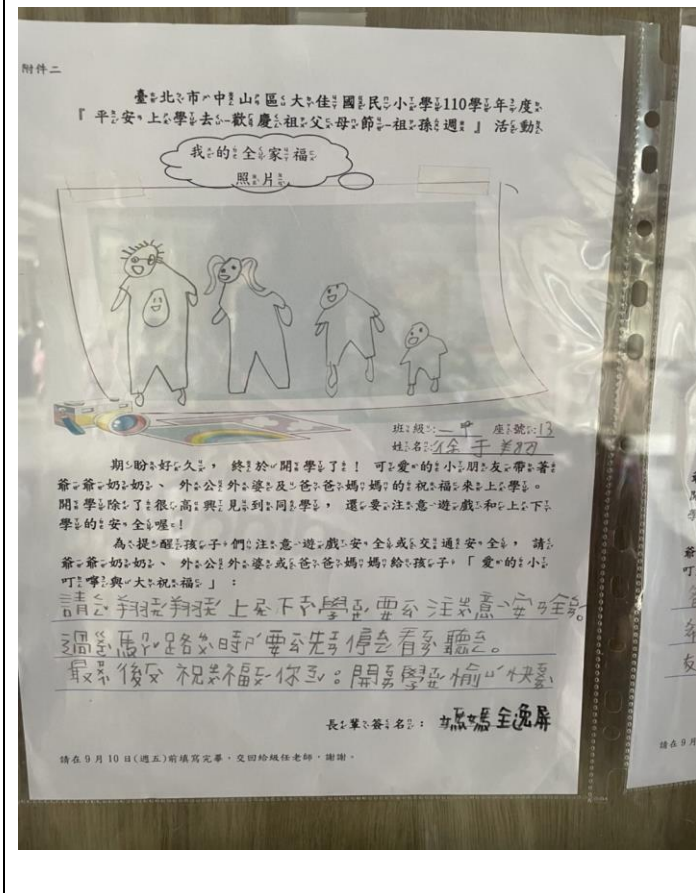 附件二
臺北市中山區大佳國民小學110學年度
『平安上學去-歡慶祖父母節-祖孫週』活動
我的全家福
照片
班級：一甲 座號：13
姓名：徐于羿翔
期盼好久，終於開學了！可愛的小朋友帶著
爺爺奶奶、外公外婆及爸爸媽媽的祝福來上學。
開學除了很高興見到同學，還要注意遊戲和上下
學的安全喔！
為提醒孩子們注意遊戲安全或交通安全，請
爺爺奶奶、外公外婆或爸爸媽媽給孩子「愛的小
叮嚀與大祝福」：
請翔翔上下學要注意安全。
過馬路時要先停看聽。
最後祝福你：開學愉快
長輩簽名：媽媽全逸屏
請在9月10日(週五)前填寫完畢，交回給級任老師，謝謝。
請在9月